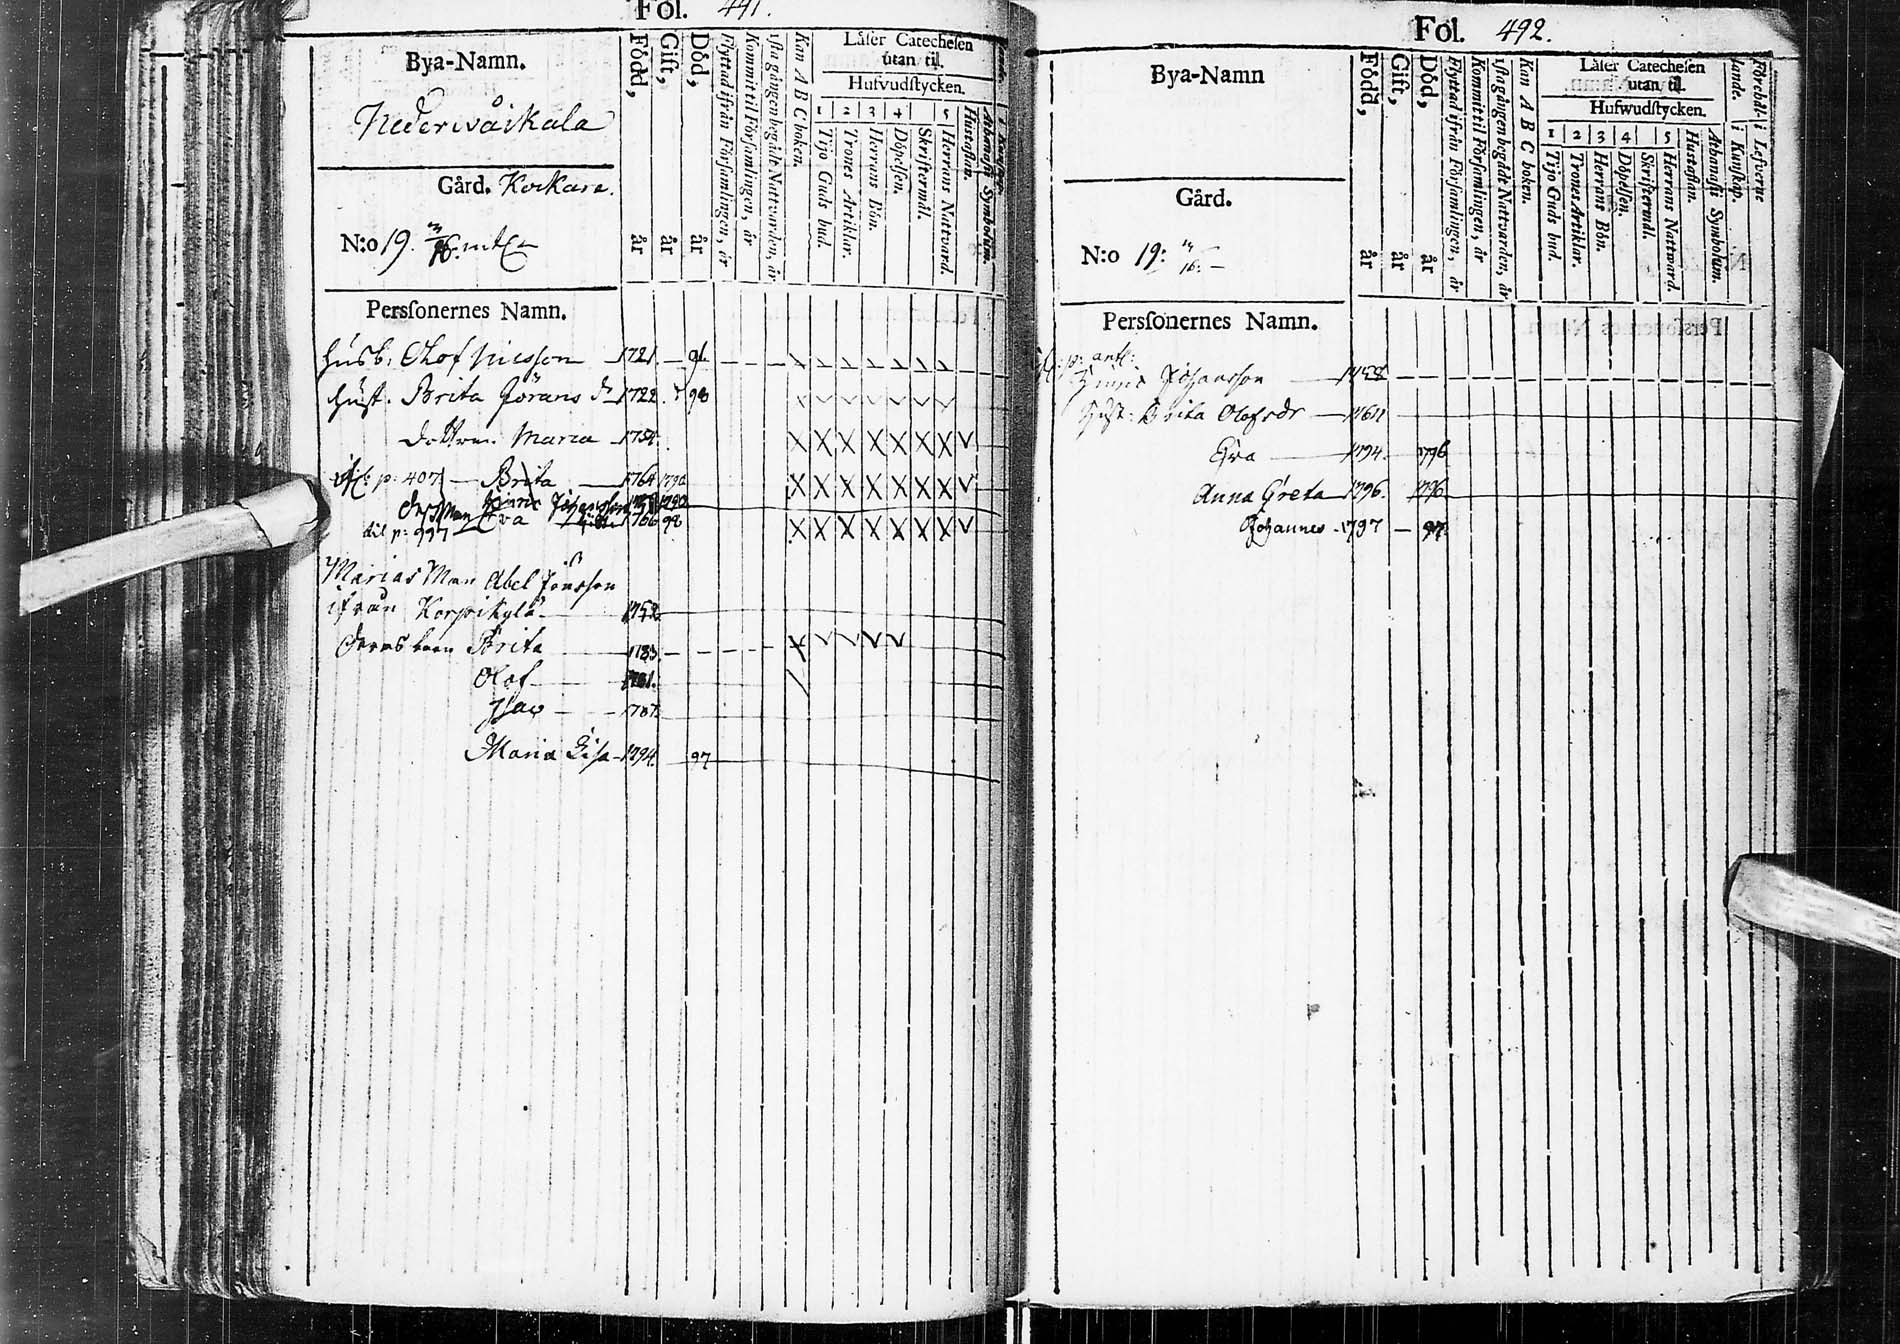 Fol. 491.
Bya-Namn.
Nederwåikala
Gård. Korkara.
N:o 19. 3/16 mtl
Född, år
Gift, år
Död, år
Flyttad ifrån Församlingen, år
Kommit til Församlingen, år
1sta gången begådt Nattvarden, år
Kan A B C boken.
Låser Catechesen
utan til.
Hufvudstycken.
1 2 3 4 5
Tijo Guds bud.
Trones Artiklar.
Herrans Bön.
Döpelsen.
Skriftermål.
Herrans Nattvard.
Hustaflan.
Athanasii Symbolum.
Perssonernes Namn.
Husb: Olof Nilsson 1721. 91.
Hust. Brita Jörans dr 1722. 98
Dottren Maria 1754.
p: 407 Brita 1764 1792
Johansson
til p: 997 Eva 1766 92
Marias Man Abel Jönsson
ifrån Korpikylä 1752
Deras barn Brita 1783.
Olof 1781.
Isac 1787.
Maria Lisa 1794. 97
Fol. 492.
Bya-Namn
Gård.
N:o 19: 3/16
Född, år
Gift, år
Död, år
Flyttad ifrån Församlingen, år
Kommit til Församlingen, år
1sta gången begådt Nattvarden, år
Kan A B C boken.
Låser Catechesen
utan til.
Hufwudstycken.
1 2 3 4 5
Tijo Guds bud.
Trones Artiklar.
Herrans Bön.
Döpelsen.
Skriftermål.
Herrans Nattward.
Hustaflan.
Athanasii Symbolum.
i Kunskap.
i Lefverne
Perssonernes Namn.
Johansson 1758
Hust: Brita Olofsdr 1764
Eva 1794. 1796
Anna Greta 1796. 1796
Johannes 1797 97.